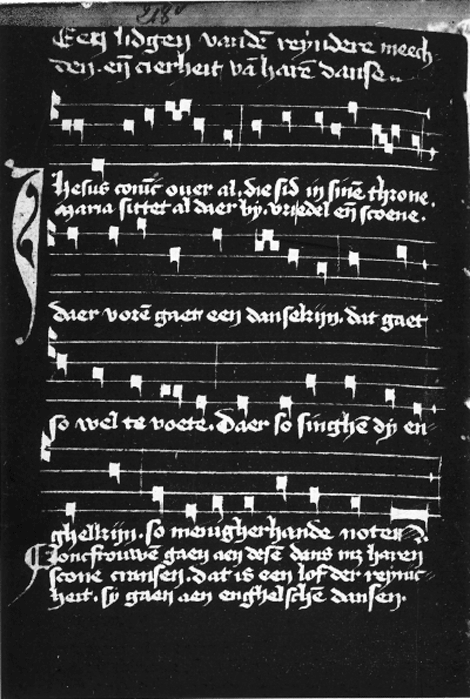 218v
Een lidgen vandē reyndere meech-
den. eñ cierheit vā harē dansen.
Ihesus coniнc ouer al, die sid in sinē throne.
maria sittet al daer by. vriedel eñ scoene.
daer vorē gaet een dansekijn. dat gaet
so wel te voete. Daer so singhē dy en-
ghelkijn. so menigherhande noten
Joncfrouwē gaen aen desē dans mz haren
scone cransen. dat is een lof der reynic-
heit. sy gaen aen enghelschē dansen.